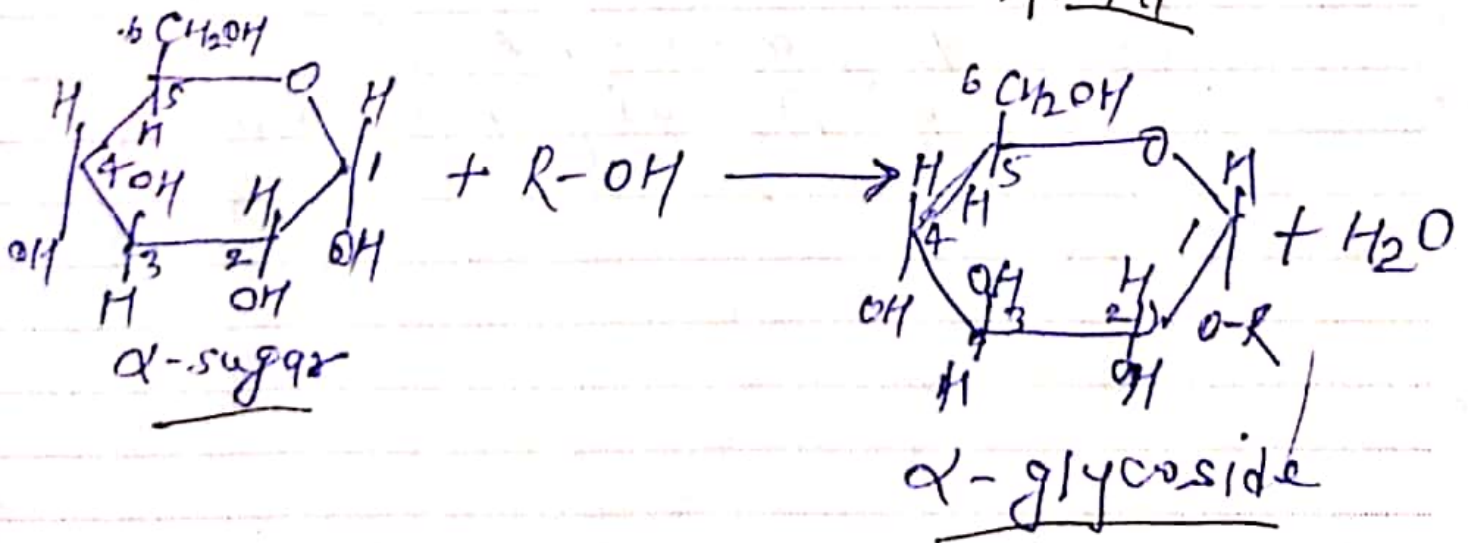 6 CH2OH
5 O
H H H
4 OH H 1
OH 3 2 OH
H OH
α-sugar
+ R-OH ⟶
6 CH2OH
5 O
H H H
4 OH H 1
OH 3 2 O-R
H OH
+ H2O
α-glycoside